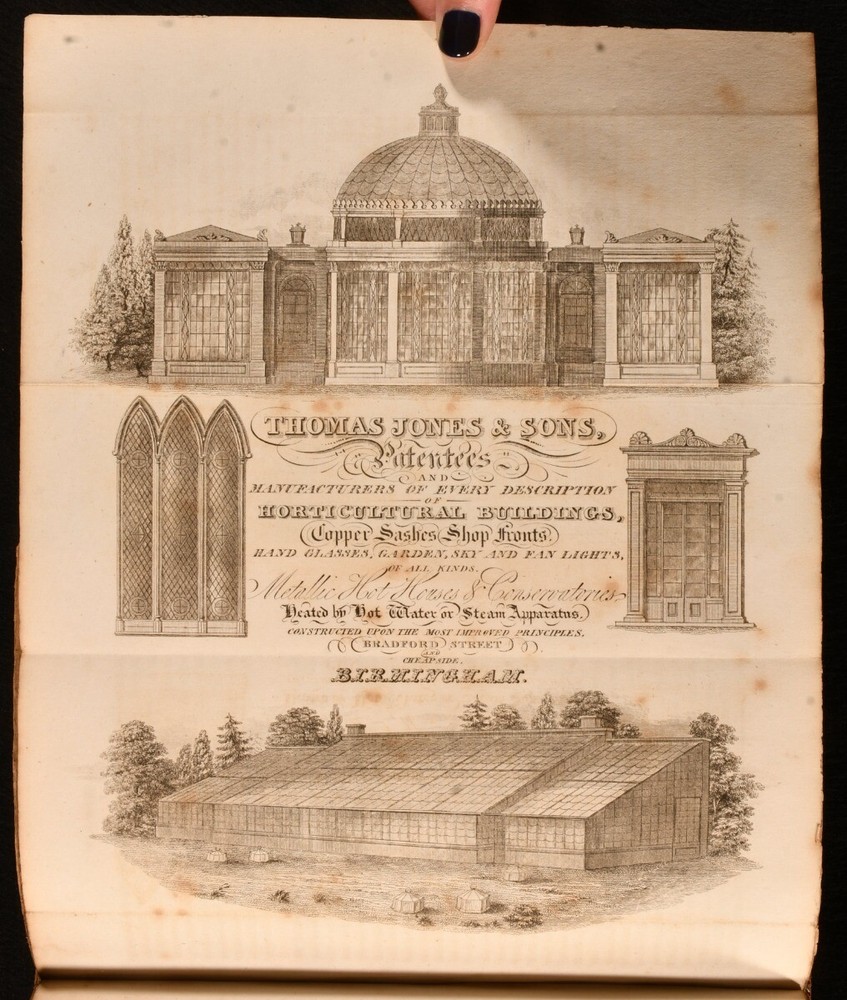 THOMAS JONES & SONS,
Patentees
AND
MANUFACTURERS OF EVERY DESCRIPTION
OF
HORTICULTURAL BUILDINGS,
Copper Sashes Shop Fronts.
HAND GLASSES, GARDEN, SKY AND FAN LIGHTS,
OF ALL KINDS.
Metallic Hot Houses & Conservatories
Heated by Hot Water or Steam Apparatus.
CONSTRUCTED UPON THE MOST IMPROVED PRINCIPLES.
BRADFORD STREET
AND
CHEAPSIDE,
BIRMINGHAM.